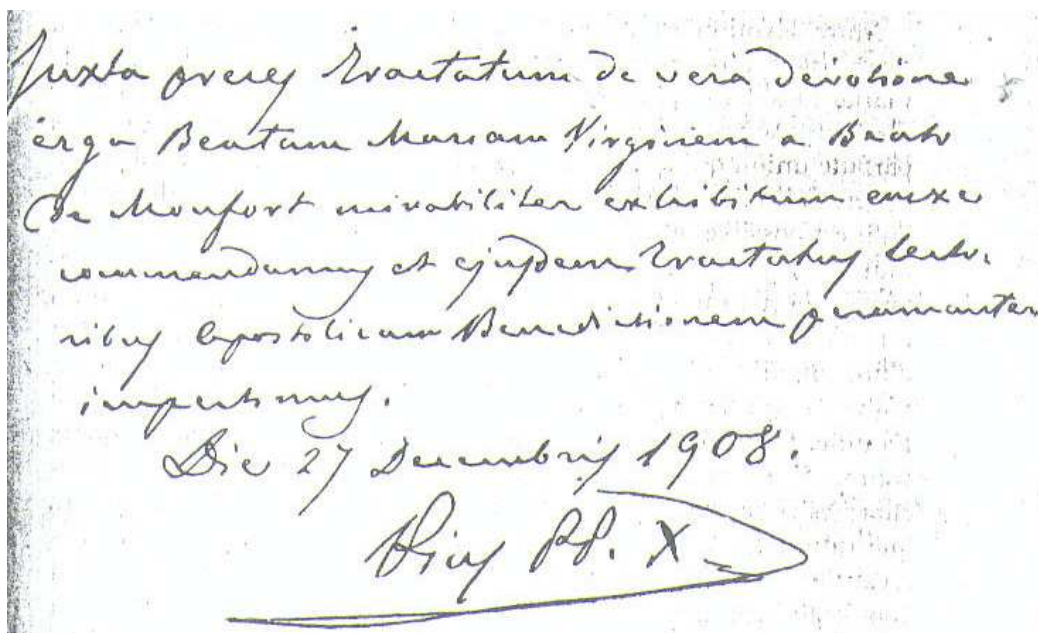 Juxta preces Tractatum de vera devotione
erga Beatam Mariam Virginem a Beato
de Monfort mirabiliter exhibitum enixe
commendamus et ejusdem Tractatus Lecto-
ribus Apostolicam Benedictionem peramanter
impertimus.
Die 27 Decembris 1908.
Pius PP. X